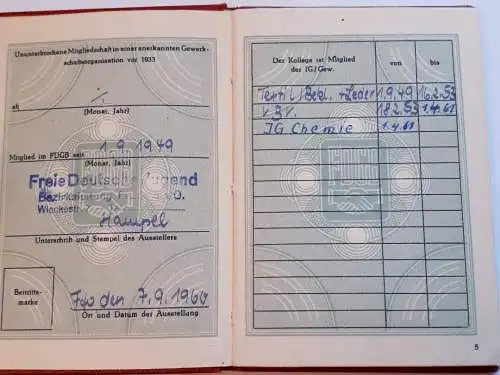 Ununterbrochene Mitgliedschaft in einer anerkannten Gewerk-
schaftsorganisation vor 1933
ab
(Monat, Jahr)
1.9.1949
Mitglied im FDGB seit
(Monat, Jahr)
Freie Deutsche Jugend
Bezirksleitung
Hampel
Unterschrift und Stempel des Ausstellers
Beitritts-
marke
Ffo den 7.9.1960
Ort und Datum der Ausstellung
Der Kollege ist Mitglied
der IG/Gew.
von
bis
Textil/Bekl. + Leder 1.9.49 16.2.53
VBV. 18.2.53 1.4.61
IG Chemie 1.4.61
FDGB
5